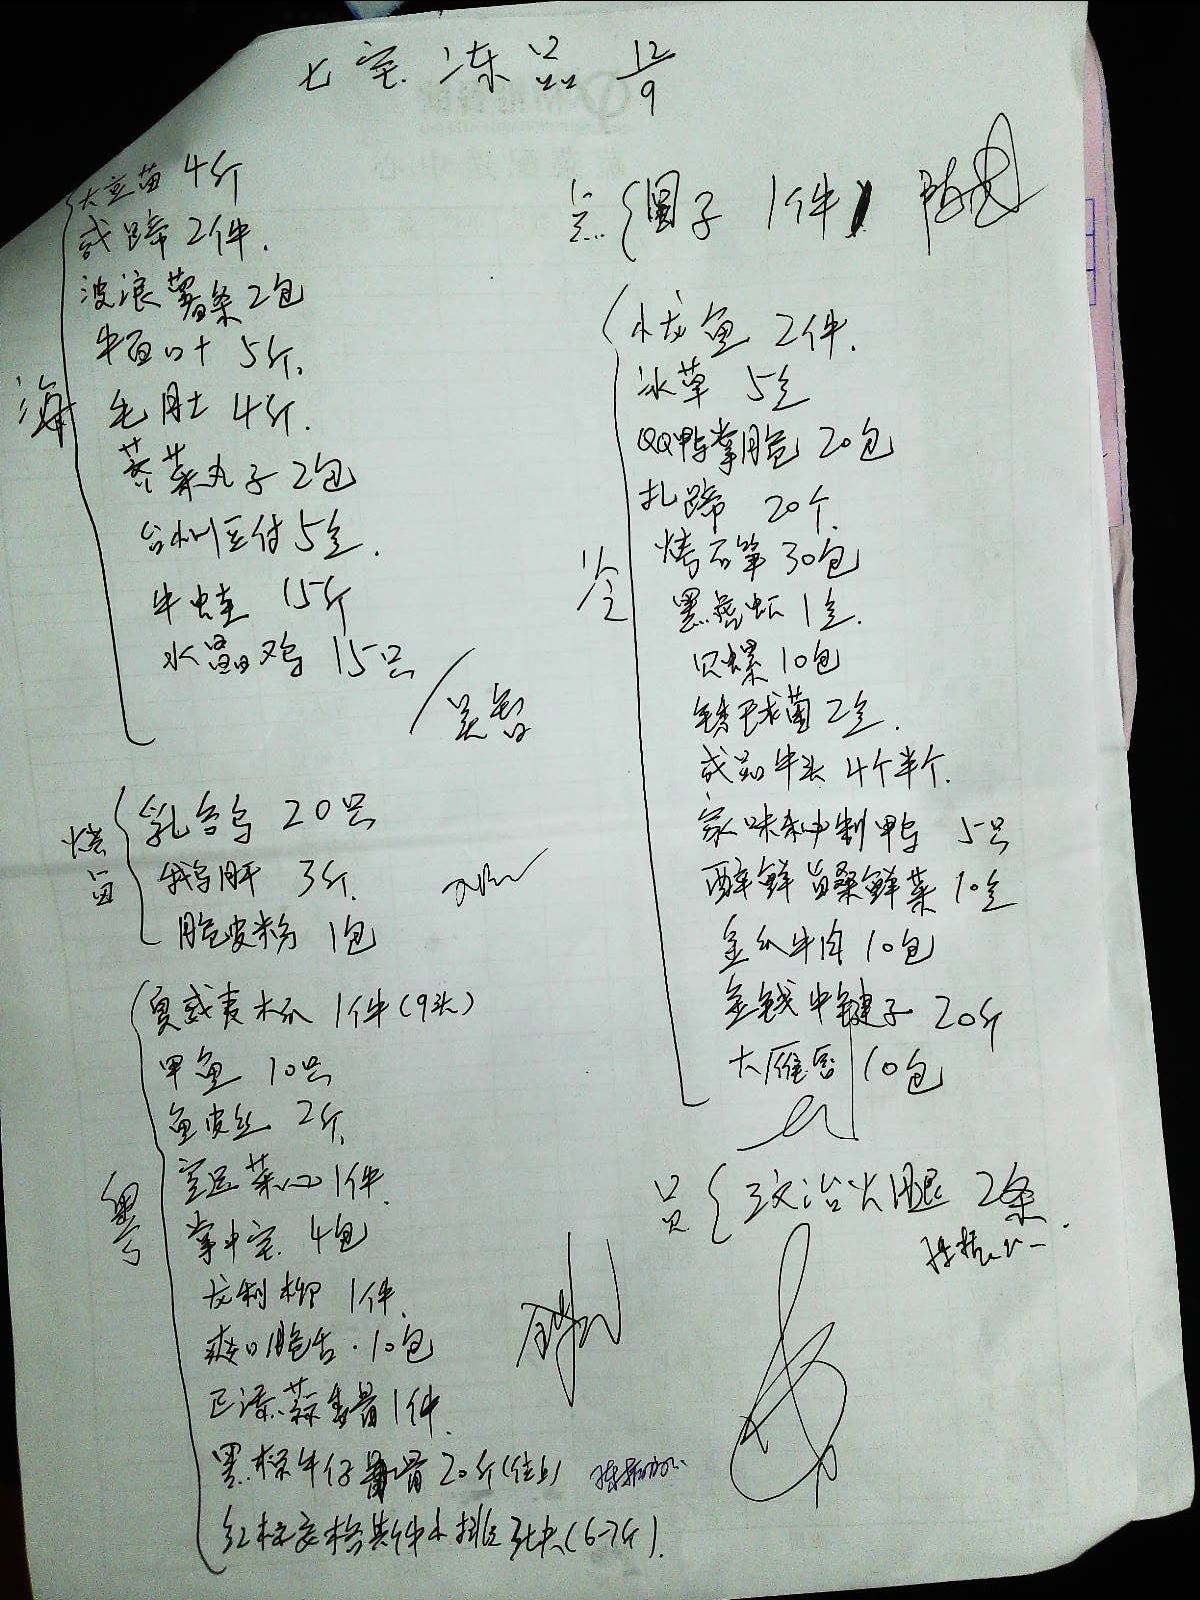 七宝冻品 12/9
大豆苗 4斤
蹄 2件.
波浪薯条 2包
牛百叶 5斤.
毛肚 4斤.
荠菜丸子 2包
台州豆付 5盒.
牛蛙 15斤
水晶鸡 15只
海
吴智
烧卤
乳鸽 20只
鹅肝 3斤.
脆皮粉 1包
粤
夏威夷木瓜 1件(9头)
甲鱼 10只
鱼皮丝 2斤.
空运菜心 1件.
掌中宝. 4包
龙利柳 1件.
爽口脆舌. 10包
蒜香骨 1件.
黑椒牛仔骨 20斤
3块(6-7斤).
点
圆子 1件
冷
水龙鱼 2件.
冰草 5盒
QQ鸭掌脆 20包
扎蹄 20个.
烤石笋 30包
黑虎虾 1盒.
贝螺 10包
绣球菌 2盒.
成品牛头 4个半个.
家味秘制鸭 5只
醉鲜旨桑鲜菜 10盒
金爪牛肉 10包
金钱牛键子 20斤
大雁 10包
贝
政治火腿 2条.